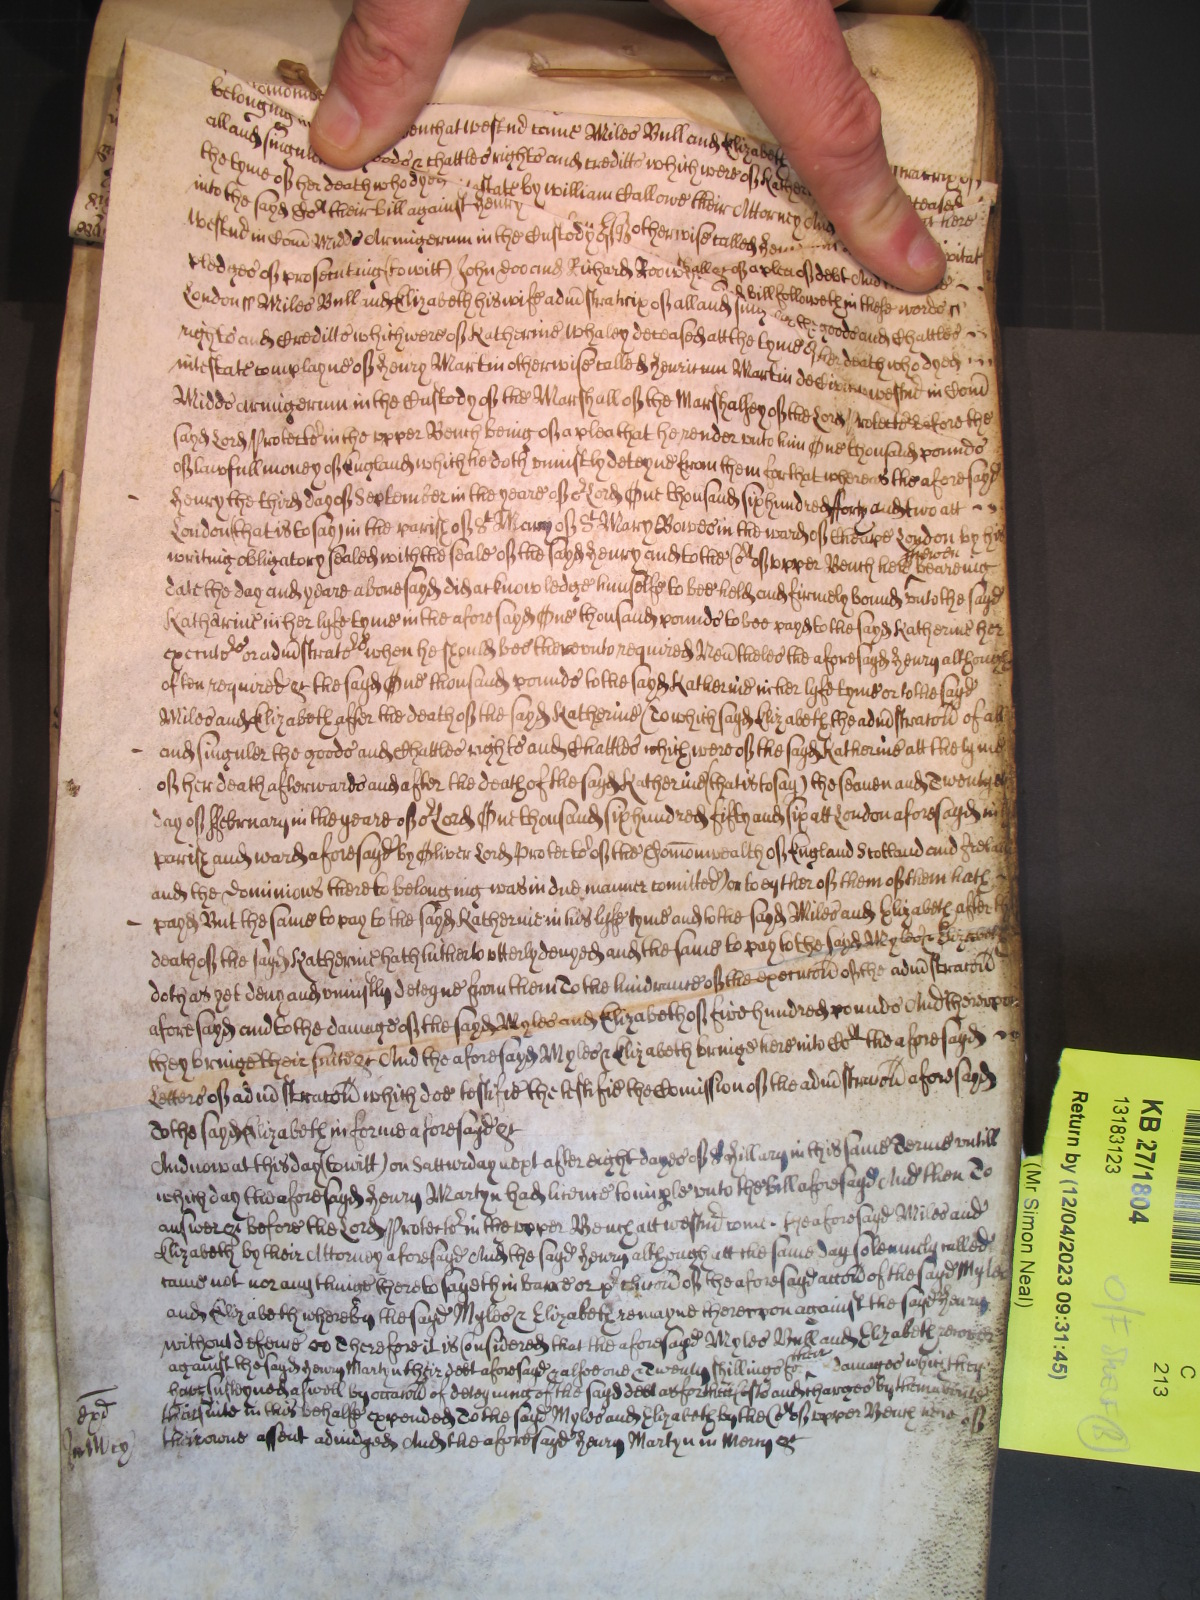 belonging
all and singuler goods & chattles rights and creditts which were of Kather
the tyme of her death who dyed intestate by William Callowe their Attorney And
into the sayd Cort their bill against Henry otherwise called Hen
Westm̄ in Com̄ Midds Armigerum in the Custody &c of a plea of debt And
pledges of prosecuting (to witt) John Doo and Richard Roo which bill followeth in these words ss
London ss Miles Bull and Elizabeth his wife adm̄stratrix of all and singuler the goods and Chattles
rights and Creditts which were of Katherine Whaley deceased att the tyme of her death who dyed
intestate complayne of Henry Martin otherwise called Henricum Martin de Westm̄ in Com̄
Midds Armigerum in the Custody of the Marshall of the Marshalsey of the Lord Protector before the
sayd Lord Protector in the upper Bench being of a plea that he render unto him One thousand pounds
of lawfull money of England which he doth uniustly deteyne from them for that whereas the aforesayd
Henry the third day of September in the yeare of or Lord One thousand six hundred forty and two att
London that is to say in the parish of St Mary of St Mary Bowe in the ward of Cheape London by his
writing obligatory sealed with the seale of the sayd Henry and to the Cort of upper Bench here shewen bearing
date the day and yeare abovesayd did acknowledge himselfe to bee held and firmely bound unto the sayd
Katharine in her lyfe tyme in the aforesayd One thousand pounds to bee payd to the sayd Katherine her
executors or adm̄strators when he should bee thereunto required Neūtheles the aforesayd Henry although
often required &c the sayd One thousand pounds to the sayd Katherine in her lyfe tyme or to the sayd
Miles and Elizabeth after the death of the sayd Katherine (To which sayd Elizabeth the adm̄stracōn of all
and singuler the goods and Chattles rights and Chattles which were of the sayd Katherine att the tyme
of her death afterwards and after the death of the sayd Katherine (that is to say) the seaven and Twentyeth
day of February in the yeare of or Lord One thousand six hundred fifty and six att London aforesayd in the
parish and ward aforesayd by Oliver Lord Protector of the Com̄onwealth of England Scotland and Ireland
and the Dominions thereto belonging was in due manner com̄itted) or to eyther of them of them hath
payd But the same to pay to the sayd Katherine in his lyfe tyme and to the sayd Miles and Elizabeth after the
death of the sayd Katherine hath hitherto utterly denyed and the same to pay to the sayd Myles & Elizabeth
doth as yet deny and uniustly deteyne from them To the hindrance of the execucōn of the adm̄stracōn
aforesayd and to the damage of the sayd Myles and Elizabeth of five hundred pounds And thereupon
they bringe their suite &c And the aforesayd Myles & Elizabeth bringe here into Cort the aforesayd
Letters of adm̄stracōn which doe testifie the testifie the Com̄ission of the adm̄stracōn aforesayd
To the sayd Elizabeth in forme aforesayd &c
And now at this day (to witt) on Satturday next after eight dayes of St Hillary in this same Terme untill
which day the aforesayd Henry Martyn had licence to imple unto the bill aforesayd And then To
answer &c before the Lord Protector in the upper Bench att Westm̄ come the aforesayd Miles and
Elizabeth by their Attorney aforesayd And the sayd Henry although att the same day solemnely called
came not nor any thinge thereto sayeth in barre or of the aforesayd accōn of the sayd Myles
and Elizabeth whereby the sayd Myles & Elizabeth remayne thereupon against the sayd Henry
without defence &c Therefore it is considered that the aforesayd Myles Bull and Elizabeth recover
against the sayd Henry Martyn their debt aforesayd & alsoe one & Twenty shillings for their damages which they
have susteyned aswell by occacōn of deteyning of the sayd debt as for their costs and charges by them about
their suite in this behalfe expended To the sayd Myles and Elizabeth by the Cort of upper Bench here of
their owne assent adiudged And the aforesayd Henry Martyn in Mercy &c
In Mcy
KB 27/1804
13183123
Return by (12/04/2023 09:31:45)
(Mr Simon Neal)
C
213